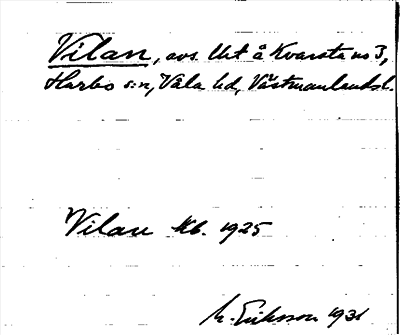 Vilan, avs. Uht å Kvarsta no 3,
Harbo s:n, Våla hd, Västmanlands l.
Vilan kb. 1925
M. Eriksson 1931